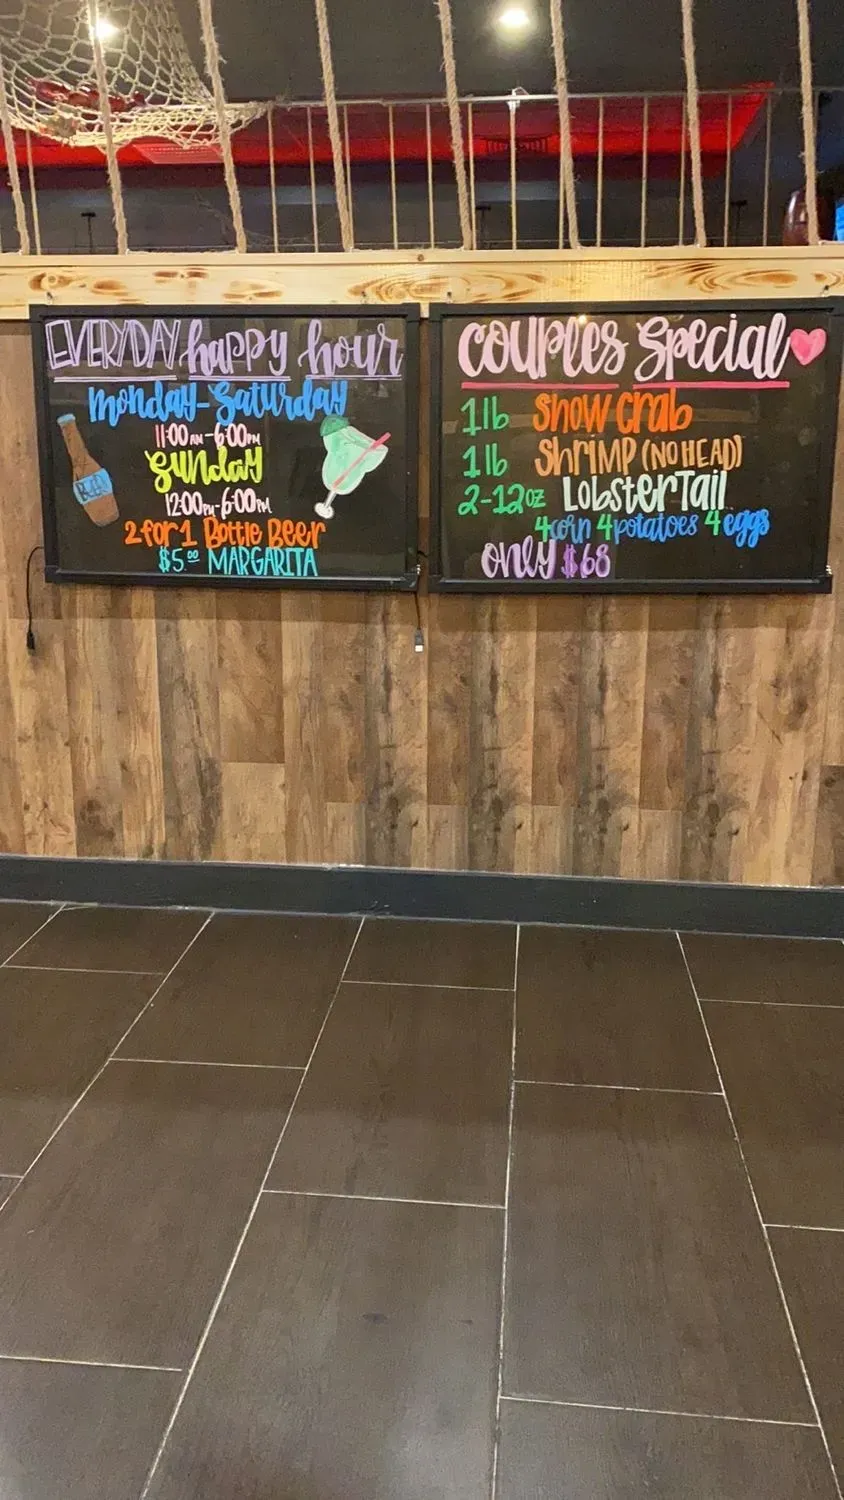 EVERYDAY happy hour
monday-Saturday
11:00 AM-6:00PM
SUNday
12:00PM-6:00PM
2 for 1 Bottle Beer
$5.00 MARGARITA
BEER
COUPLES Special
1 lb Snow Crab
1 lb Shrimp (NO HEAD)
2-12oz LobsterTail
4 corn 4 potatoes 4 eggs
ONLY $68